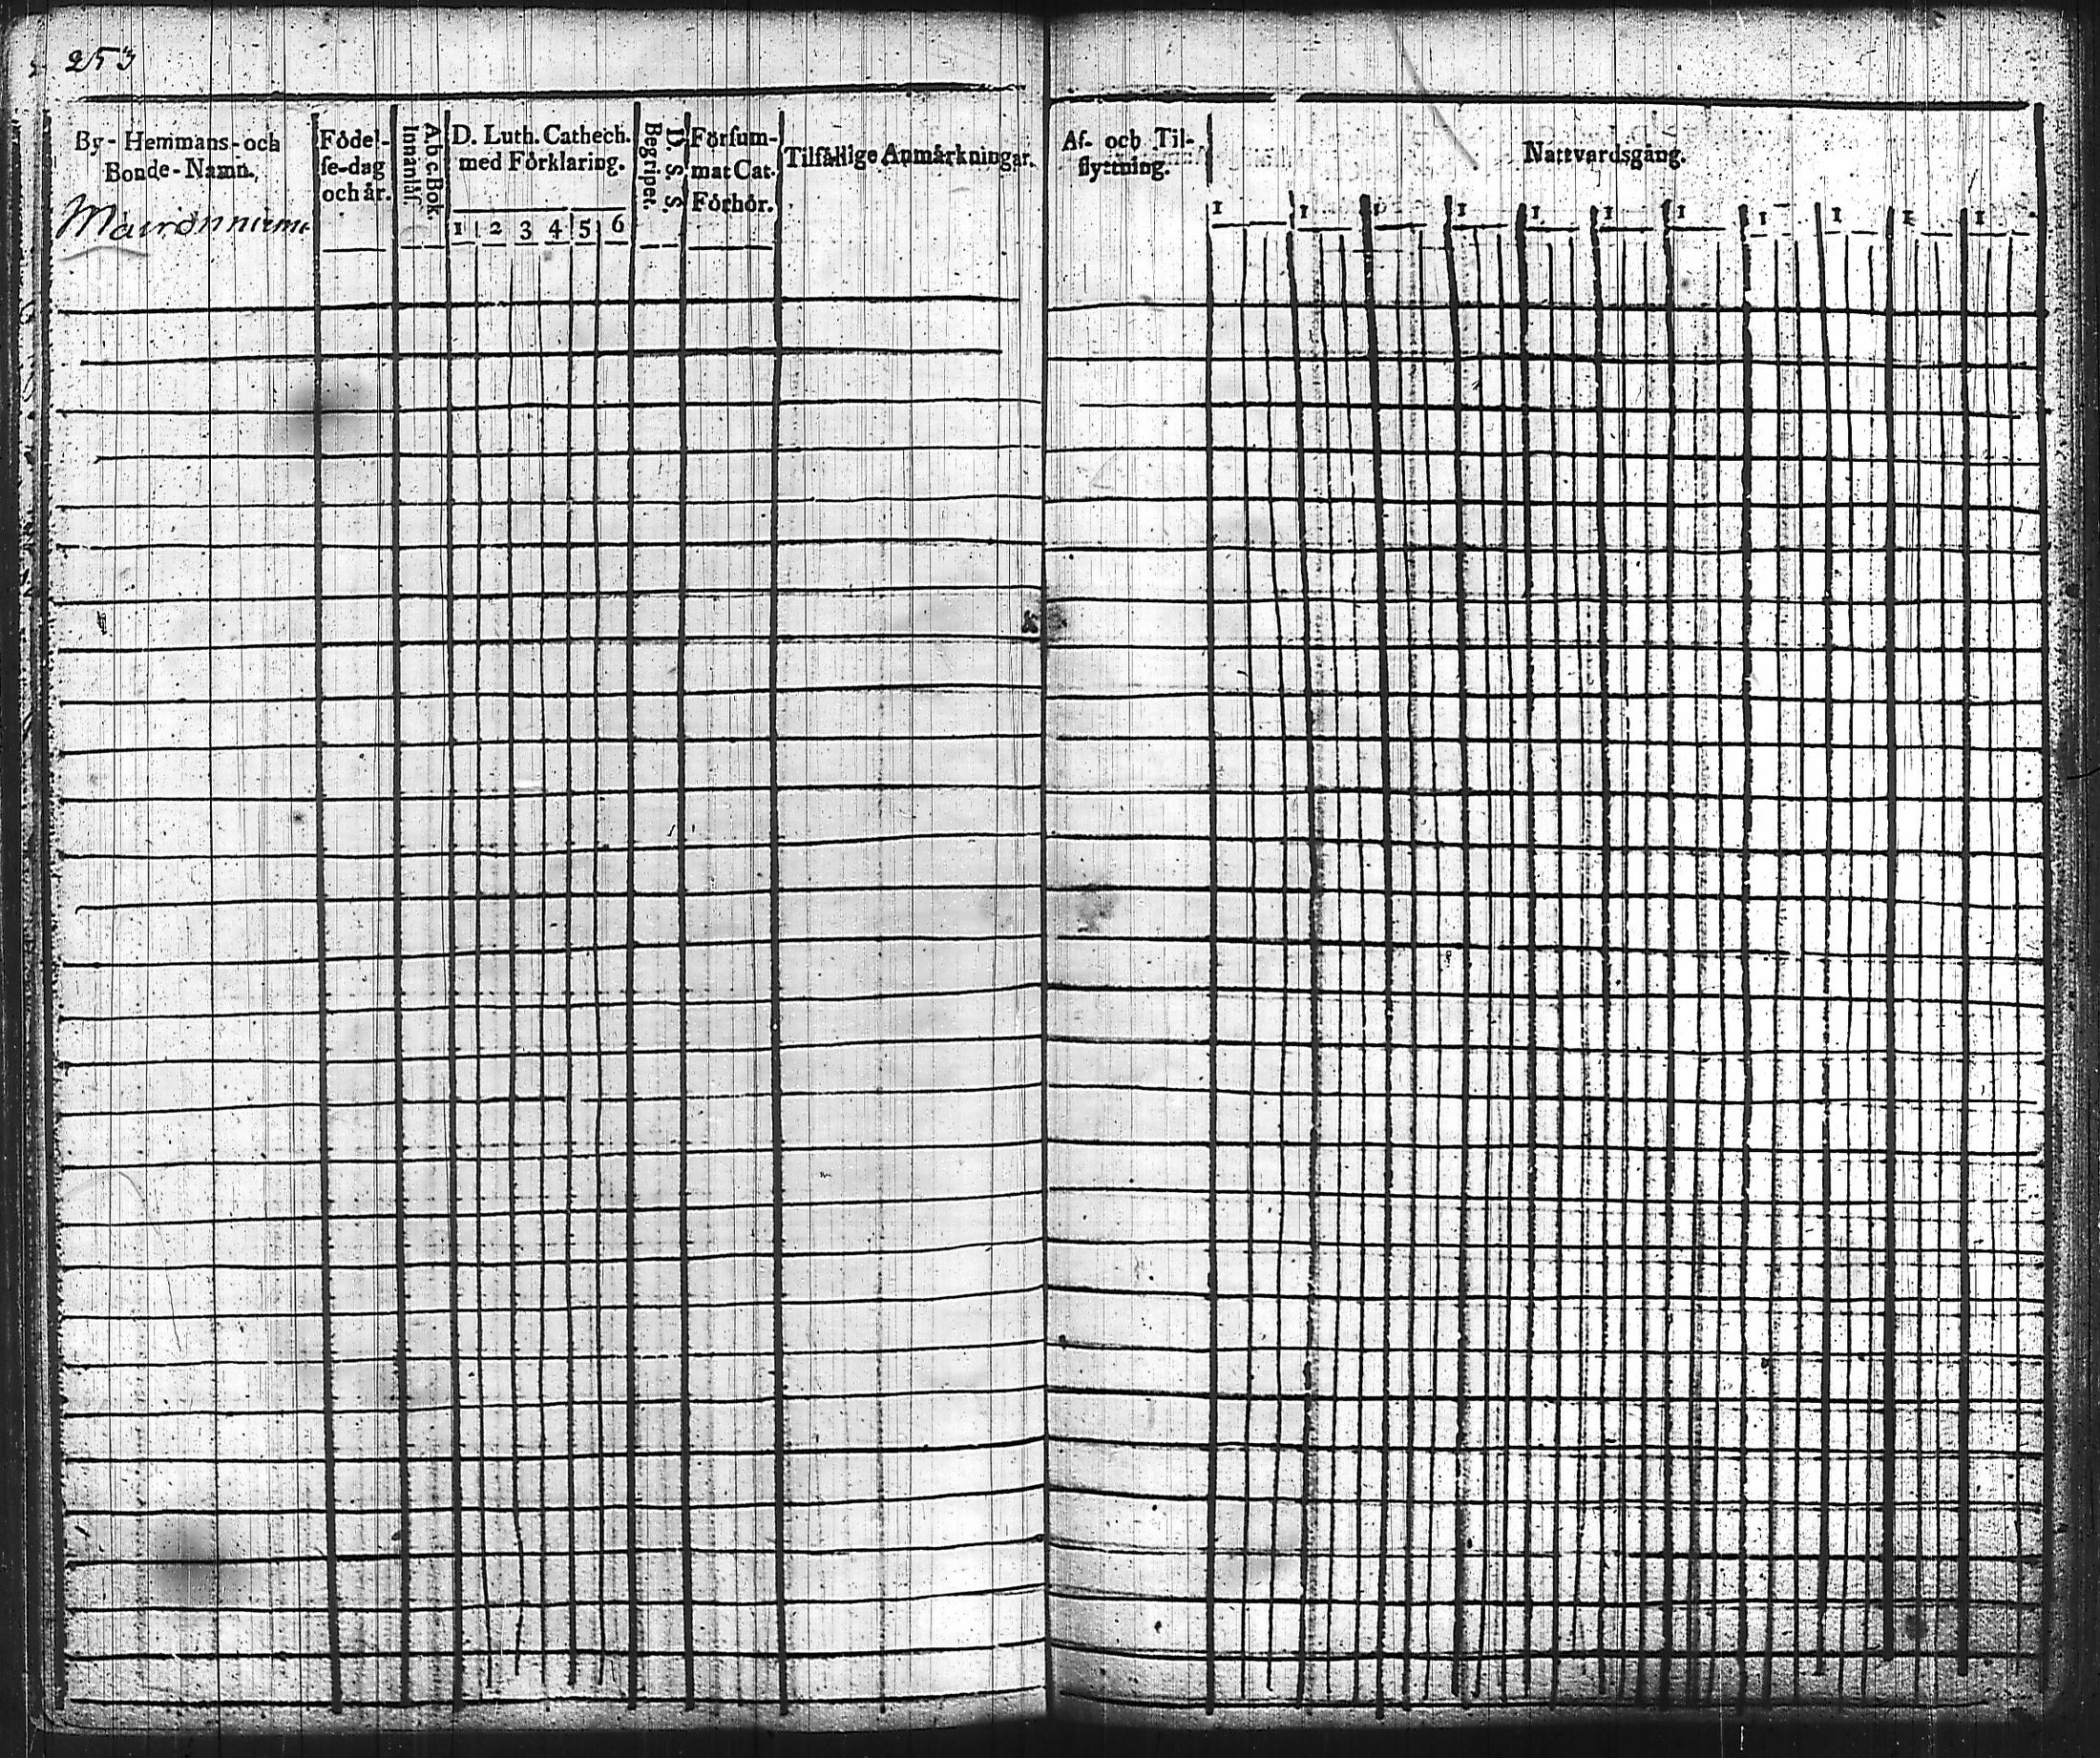 253
By- Hemmans- och
Bonde-Namn.
Födel-
se-dag
och år.
Abc Bok.
Innanläs.
D. Luth. Cathech.
med Förklaring.
1 2 3 4 5 6
D. S. S.
Begriper.
Försum-
mat Cat.
Förhör.
Tilfällige Anmärkningar.
Af- och Til-
flyttning.
Nattvardsgång.
1 1 1 1 1 1 1 1 1 1 1